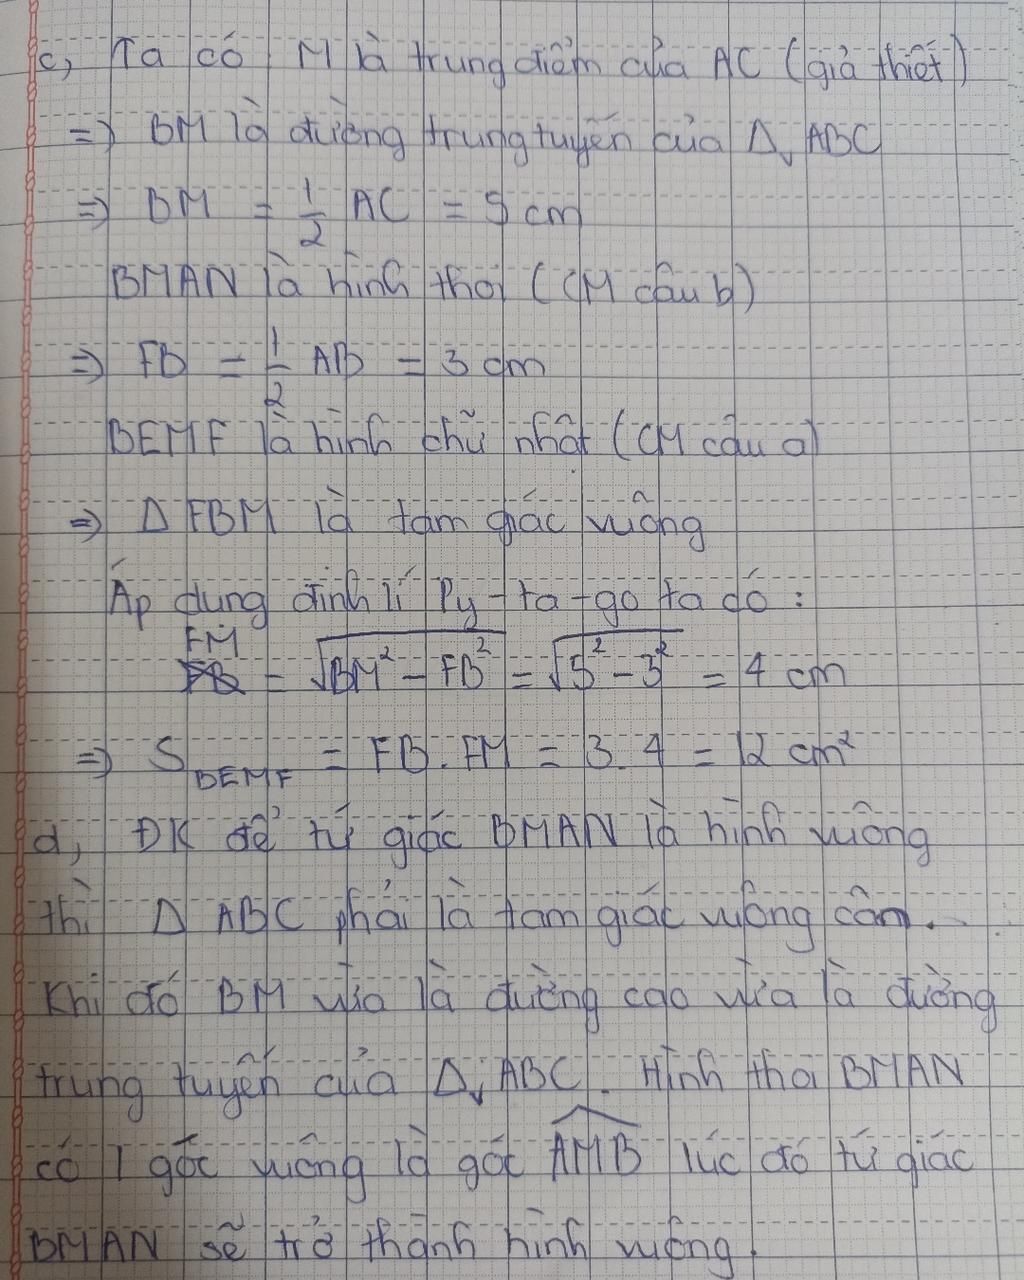 c, Ta có M là trung điểm của AC (giả thiết)
=> BM là đường trung tuyến của Δv ABC
=> BM = 1/2 AC = 5 cm
BMAN là hình thoi (CM câu b)
=> FB = 1/2 AB = 3 cm
BEMF là hình chữ nhật (CM câu a)
=> Δ FBM là tam giác vuông
Áp dụng định lí Py-ta-go ta có :
FM = √(BM² - FB²) = √(5² - 3²) = 4 cm
=> S BEMF = FB . FM = 3. 4 = 12 cm²
d, ĐK để tứ giác BMAN là hình vuông
thì Δ ABC phải là tam giác vuông cân.
Khi đó BM vừa là đường cao vừa là đường
trung tuyến của Δv ABC. Hình thoi BMAN
có 1 góc vuông là góc AMB lúc đó tứ giác
BMAN sẽ trở thành hình vuông.